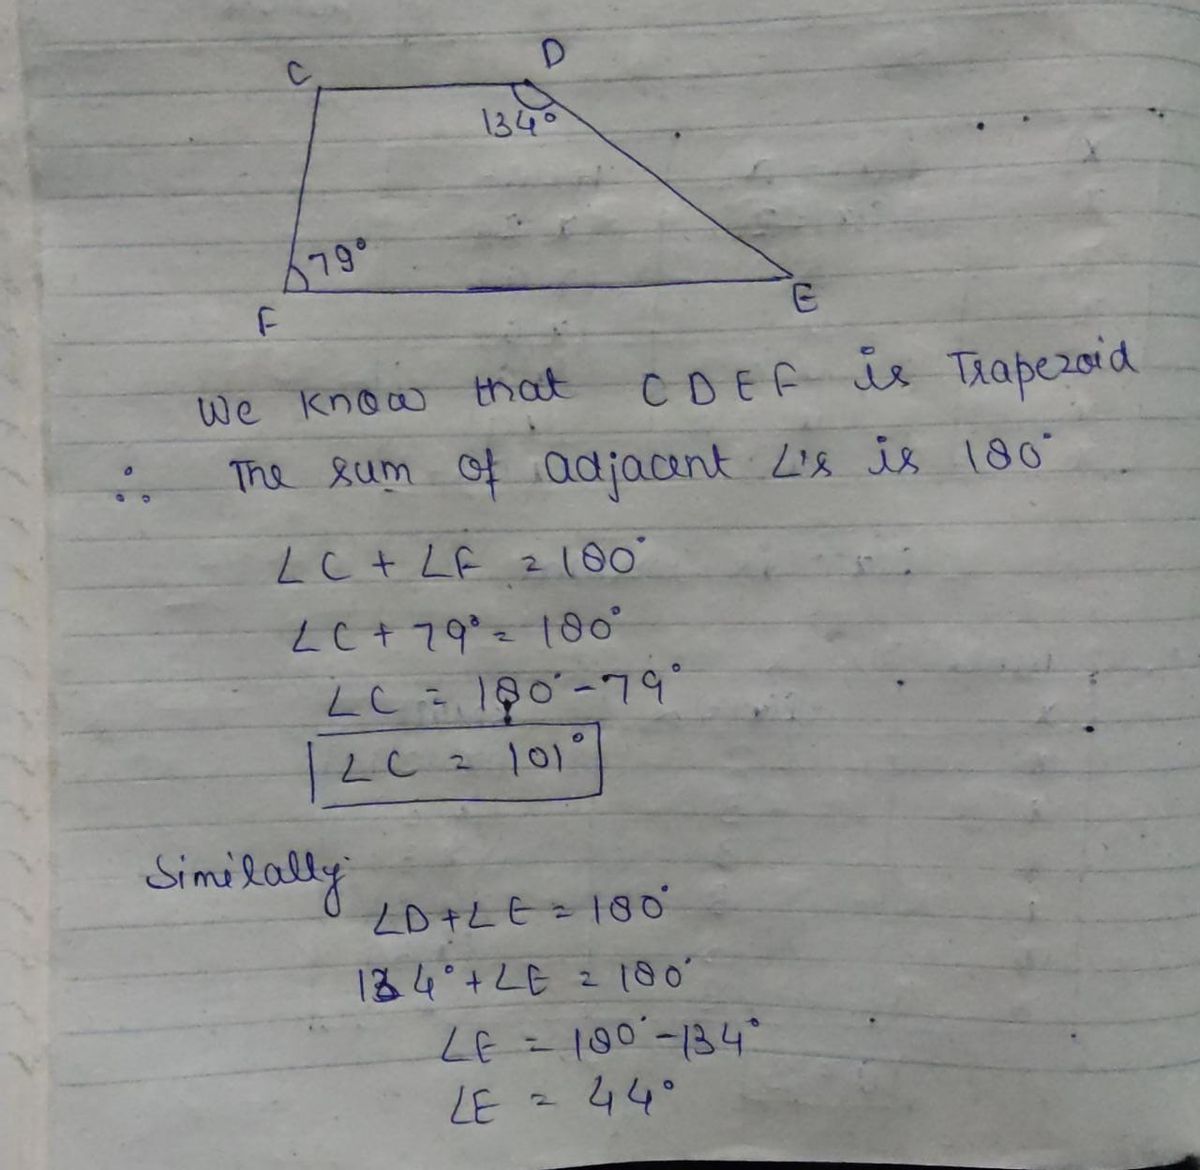 C D
134°
79°
F E
We know that CDEF is Trapezoid
∴ The sum of adjacent ∠'s is 180°
∠C + ∠F = 180°
∠C + 79° = 180°
∠C = 180° - 79°
∠C = 101°
Similally
∠D + ∠E = 180°
134° + ∠E = 180°
∠E = 180° - 134°
∠E = 44°